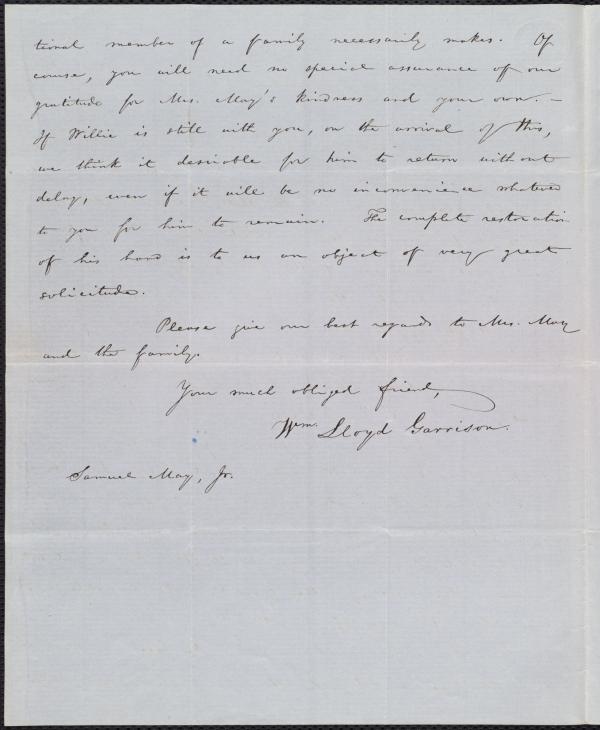 tional member of a family necessarily makes. Of
course, you will need no special assurance of our
gratitude for Mrs. May's kindness and your own. –
If Willie is still with you, on the arrival of this,
we think it desirable for him to return without
delay, even if it will be no inconvenience whatever
to you for him to remain. The complete restoration
of his hand is to us an object of very great
solicitude.
Please give our best regards to Mrs. May
and the family.
Your much obliged friend,
Wm. Lloyd Garrison.
Samuel May, Jr.